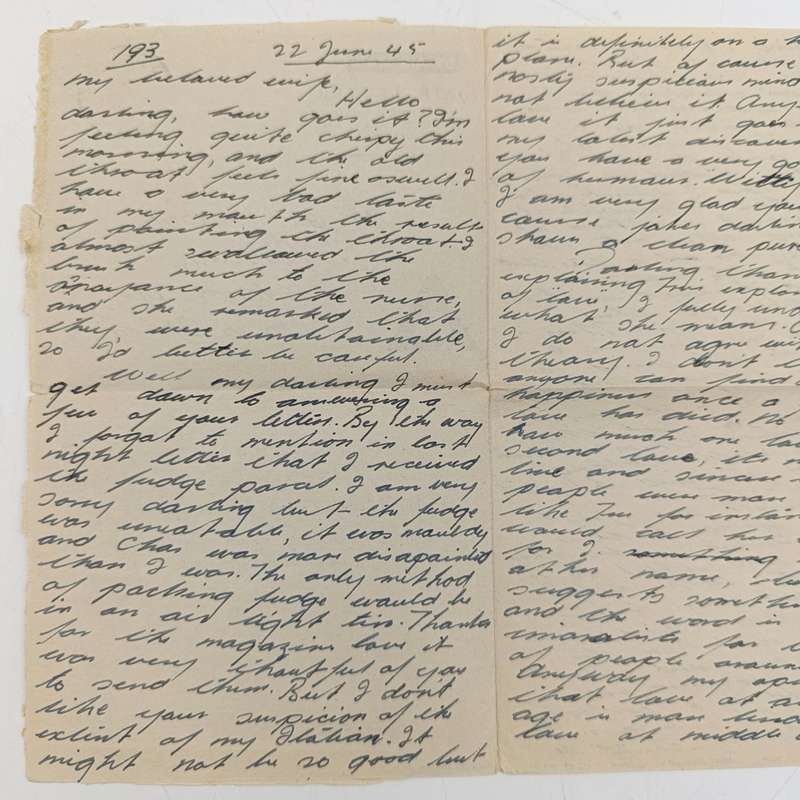 193 22 June 45
My beloved wife,
Hello
darling, how goes it? I'm
feeling quite chirpy this
morning, and the old
throat feels fine aswell. I
have a very bad taste
in my mouth the result
of painting the throat. I
almost swallowed the
brush much to the
anoyance of the nurse,
and she remarked that
they were unobtainable,
so I'd better be careful.
Well my darling I must
get down to answering a
few of your letters. By the way
I forgot to mention in last
night letter that I received
the fudge parcel. I am very
sorry darling but the fudge
was uneatable, it was mouldy
and Chas was more disapointed
than I was. The only method
of packing fudge would be
in an air tight tin. Thanks
for the magazine love it
was very thoutful of you
to send them. But I don't
like your suspicion of the
extent of my Italian. It
might not be so good but
it is definitely on a
plane. But of cause
nosty suspicious mind
not believe it. Any
love it just goes
my latest discov
you have a very go
of humour. Witty
I am very glad you
cause jokes darlin
shows a clean pure
Darling than
explaining
of love, I fully und
what she means.
I do not agre wit
theary. I don't
anyone can find
happiness once a
love has died. No
how much one lo
second love, its
true and sincere
people were more
like for instan
would call has
for I. something
other name,
suggests somethin
and the word is
imoralists for
of people aroun
Anyway my opi
that love at a
age is more
love at middle